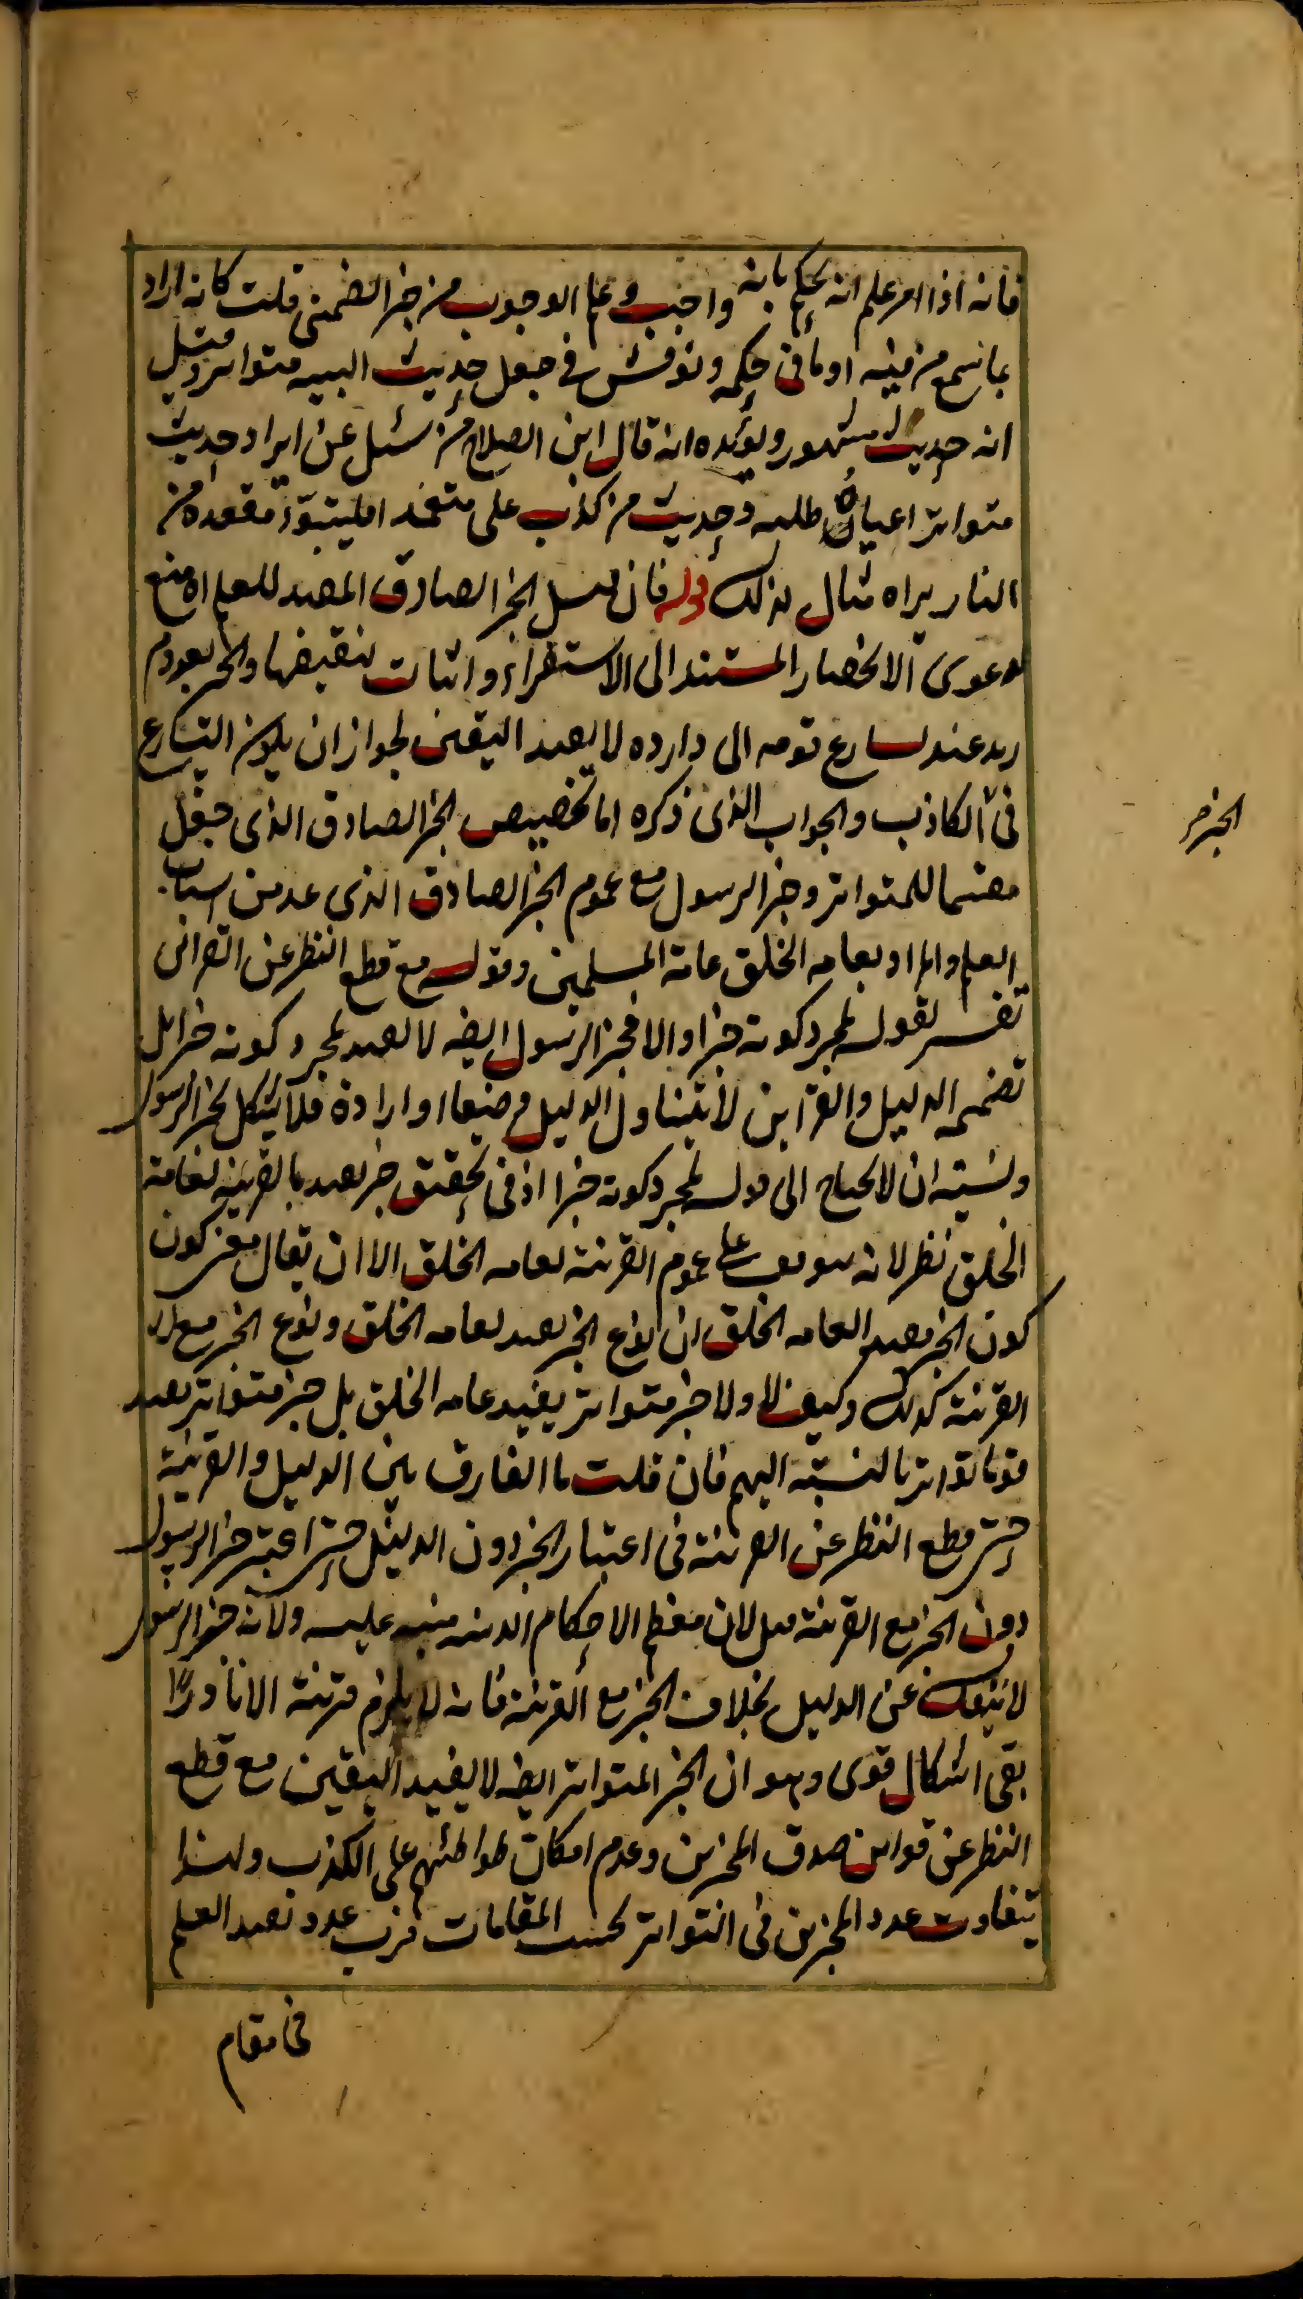 فانه اذا امر علم انه يحكم بانه واجب وعلم الوجوب من خبر الضمنى قلت كانه اراد
بما سمع من فيه او ما فى حكمه ونوقش فى جعل حديث البينه متواترا وقيل
انه حديث مشهور ويؤيده انه قال ابن الصلاح من سئل عن ايراد حديث
متواتر اعياه طلبه وحديث من كذب على متعمدا فليتبوّأ مقعده من
النار يراه مثال لذلك قوله فان قيل الخبر الصادق المفيد للعلم اه منع
لدعوى الانحصار المستند الى الاستقراء واثبات لنقيضها والخبر بقدوم
زيد عند تسارع قومه الى داره لا يفيد اليقين لجواز ان يكون التسارع
فى الكاذب والجواب الذى ذكره اما تخصيص الخبر الصادق الذى جعل
مقسما للمتواتر وخبر الرسول مع عموم الخبر الصادق الذى عد من اسباب
العلم والمراد بعامه الخلق عامة المسلمين وقوله مع قطع النظر عن القرائن
تفسير لقوله بمجرد كونه خبرا والا فخبر الرسول ايضه لا يفيد بمجرد كونه خبرا بل
تضمه الدليل والقراين لا يتناول الدليل وضعا او ارادة فلا يشكل بخبر الرسول
ولشبه ان لا يحتاج الى قوله بمجرد كونه خبرا اذ فى تحقق خبر يفيد بالقرينة لعامة
الخلق نظر لانه يتوقف على عموم القرينة لعامه الخلق الا ان يقال معنى كون
كون الخبر مفيدا لعامه الخلق ان نوع الخبر يفيد لعامه الخلق ونوع الخبر مع
القرينة كذلك وكيف لا ولا خبر متواتر يفيد عامه الخلق بل خبر متواتر يفيد
قوما تواتر بالنسبة اليهم فان قلت ما الفارق بين الدليل والقرينة
حتى قطع النظر عن القرينة فى اعتبار الخبر دون الدليل حتى اعتبر خبر الرسول
دون الخبر مع القرينة قيل لان معظم الاحكام الدينيه مبنيه عليه ولانه خبر الرسول
لا ينفك عن الدليل بخلاف الخبر مع القرينة فانه لا يلزم قرينة الا نادرًا
بقى اشكال قوى وهو ان الخبر المتواتر ايضه لا يفيد اليقين مع قطع
النظر عن قواين صدق المخبرين وعدم امكان تواطئهم على الكذب ولهذا
يتفاوت عدد المخبرين فى التواتر بحسب المقامات فرب عدد يفيد العلم
فى مقام
الخبر